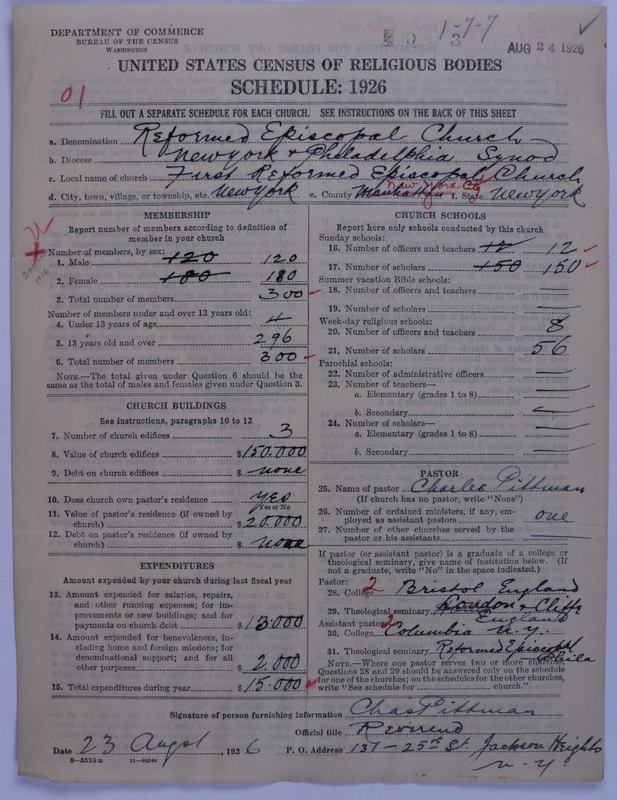 DEPARTMENT OF COMMERCE
BUREAU OF THE CENSUS
WASHINGTON
1-7-7
3
AUG 24 1926
UNITED STATES CENSUS OF RELIGIOUS BODIES
SCHEDULE: 1926
01
FILL OUT A SEPARATE SCHEDULE FOR EACH CHURCH. SEE INSTRUCTIONS ON THE BACK OF THIS SHEET
a. Denomination Reformed Episcopal Church
b. Diocese New York & Philadelphia Synod
c. Local name of church First Reformed Episcopal Church
d. City, town, village, or township, etc. New York e. County Manhattan New York City f. State New York
MEMBERSHIP
Report number of members according to definition of
member in your church
Number of members, by sex:
1. Male 120 120
2. Female 180 180
3. Total number of members 300
Number of members under and over 13 years old:
4. Under 13 years of age 4
5. 13 years old and over 296
6. Total number of members 300
NOTE.—The total given under Question 6 should be
same as the total of males and females given under Question 3.
CHURCH BUILDINGS
See instructions, paragraphs 10 to 12
7. Number of church edifices 3
8. Value of church edifices $150.000
9. Debt on church edifices $ none
10. Does church own pastor's residence yes
Yes or No
11. Value of pastor's residence (if owned by
church) $20.000
12. Debt on pastor's residence (if owned by
church) $ none
EXPENDITURES
Amount expended by your church during last fiscal year
13. Amount expended for salaries, repairs,
and other running expenses; for im-
provements or new buildings; and for
payments on church debt $13.000
14. Amount expended for benevolences, in-
cluding home and foreign missions; for
denominational support; and for all
other purposes $2.000
15. Total expenditures during year $15.000
CHURCH SCHOOLS
Report here only schools conducted by this church
Sunday schools:
16. Number of officers and teachers 12 12
17. Number of scholars 150 150
Summer vacation Bible schools:
18. Number of officers and teachers
19. Number of scholars
Week-day religious schools:
20. Number of officers and teachers 8
21. Number of scholars 56
Parochial schools:
22. Number of administrative officers
23. Number of teachers—
a. Elementary (grades 1 to 8)
b. Secondary
24. Number of scholars—
a. Elementary (grades 1 to 8)
b. Secondary
PASTOR
25. Name of pastor Charles Pittman
(If church has no pastor, write "None")
26. Number of ordained ministers, if any, em-
ployed as assistant pastors one
27. Number of other churches served by the
pastor or his assistants
If pastor (or assistant pastor) is a graduate of a college or
theological seminary, give name of institution below. (If
not a graduate, write "No" in the space indicated.)
Pastor: 2
28. College Bristol England
29. Theological seminary London & Cliff
England
Assistant pastor: 2
30. College Columbia N.Y.
31. Theological seminary Reformed Episcopal
Phila
NOTE.—Where one pastor serves two or more churches,
Questions 28 and 29 should be answered only on the schedule
for one of the churches; on the schedules for the other churches,
write "See schedule for church."
Signature of person furnishing information Chas Pittman
Official title Reverend
Date 23 Augst, 1926 P. O. Address 137 - 25th St. Jackson Heights
N. Y.
8-5513 a 11-9264